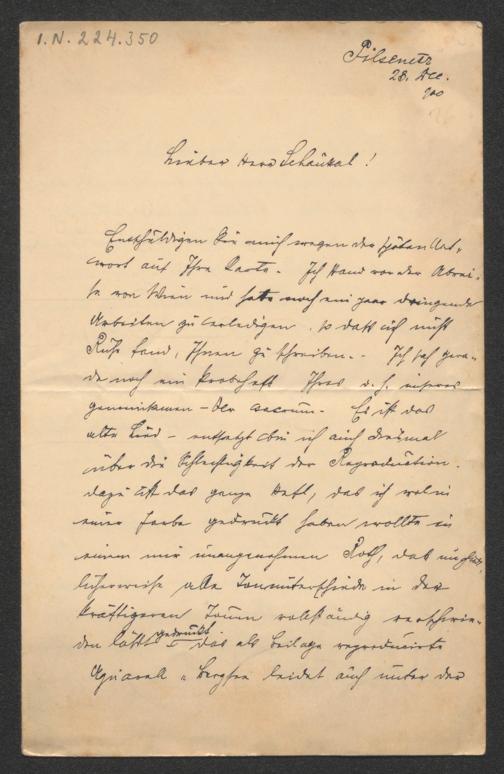 I.N. 224.350
Pilsenetz
28. Dec.
900
Lieber Herr Schaukal!
Entschuldigen Sie mich wegen der späten Ant-
wort auf Ihre Karte. Ich stand vor der Abrei-
se von Wien und hatte noch ein paar dringende
Arbeiten zu erledigen, so daß ich nicht
Ruhe fand, Ihnen zu schreiben. - Ich sah gera-
de noch ein Probeheft Ihres d. h. unseres
gemeinsamen - Ver sacrum. Es ist das
alte Lied - entsetzt bin ich auch diesmal
über die Schlechtigkeit der Reproduction.
dazu ist das ganze Heft, das ich wol in
einer Farbe gedruckt haben wollte in
einem mir unangenehmen Roth, das unglück-
licherweise alle Tonunterschiede in der
kräftigeren Tönen vollständig verschwin-
den läßt gedruckt das als Beilage reproducirte
Aquarell „Bergsee leidet auch unter der